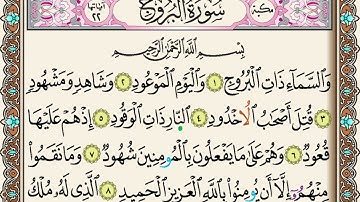 مكية
سورة البروج
آياتها ٢٢
بِسْمِ اللَّهِ الرَّحْمَٰنِ الرَّحِيمِ
وَالسَّمَاءِ ذَاتِ الْبُرُوجِ ١ وَالْيَوْمِ الْمَوْعُودِ ٢ وَشَاهِدٍ وَمَشْهُودٍ
٣ قُتِلَ أَصْحَابُ الْأُخْدُودِ ٤ النَّارِ ذَاتِ الْوَقُودِ ٥ إِذْ هُمْ عَلَيْهَا
قُعُودٌ ٦ وَهُمْ عَلَىٰ مَا يَفْعَلُونَ بِالْمُؤْمِنِينَ شُهُودٌ ٧ وَمَا نَقَمُوا
مِنْهُمْ إِلَّا أَنْ يُؤْمِنُوا بِاللَّهِ الْعَزِيزِ الْحَمِيدِ ٨ الَّذِي لَهُ مُلْكُ